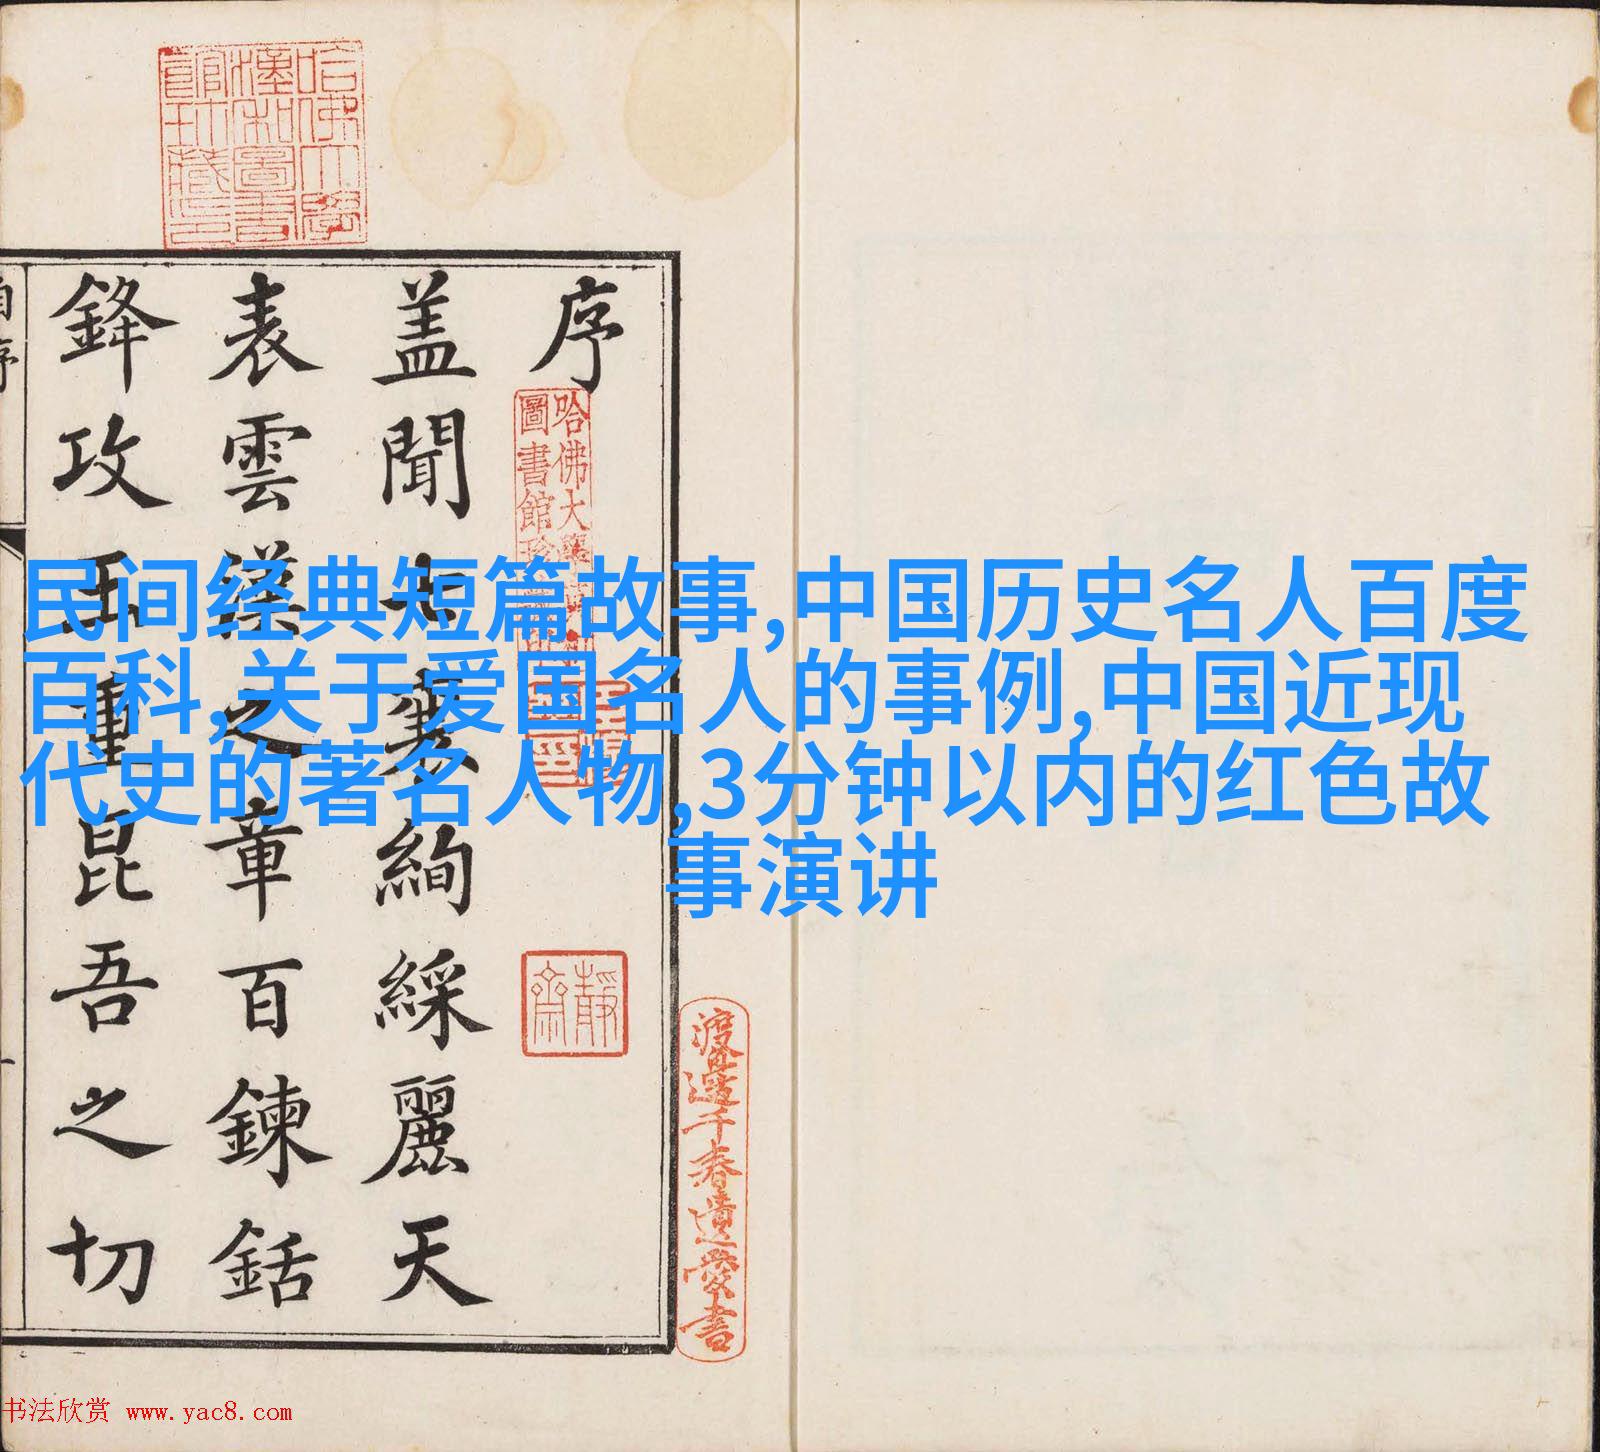 民间经典短篇故事,中国历史名人百度
百科,关于爱国名人的事例,中国近现
代史的著名人物,3分钟以内的红色故
事演讲
哈佛大學
漢和圖書
館珎藏印
序
哈佛大
圖書館
蓋聞七襄絢綵麗天
表雲漢之章百鍊銛
鋒攻玉重昆吾之切
靜齋
渡邊千春遺愛書
书法欣赏 www.yac8.com